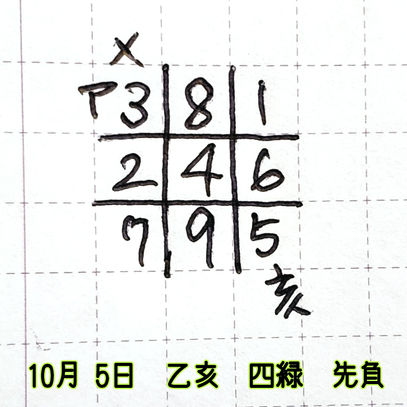 ×
ア 3 8 1
2 4 6
7 9 5
亥
10月 5日 乙亥 四緑 先負